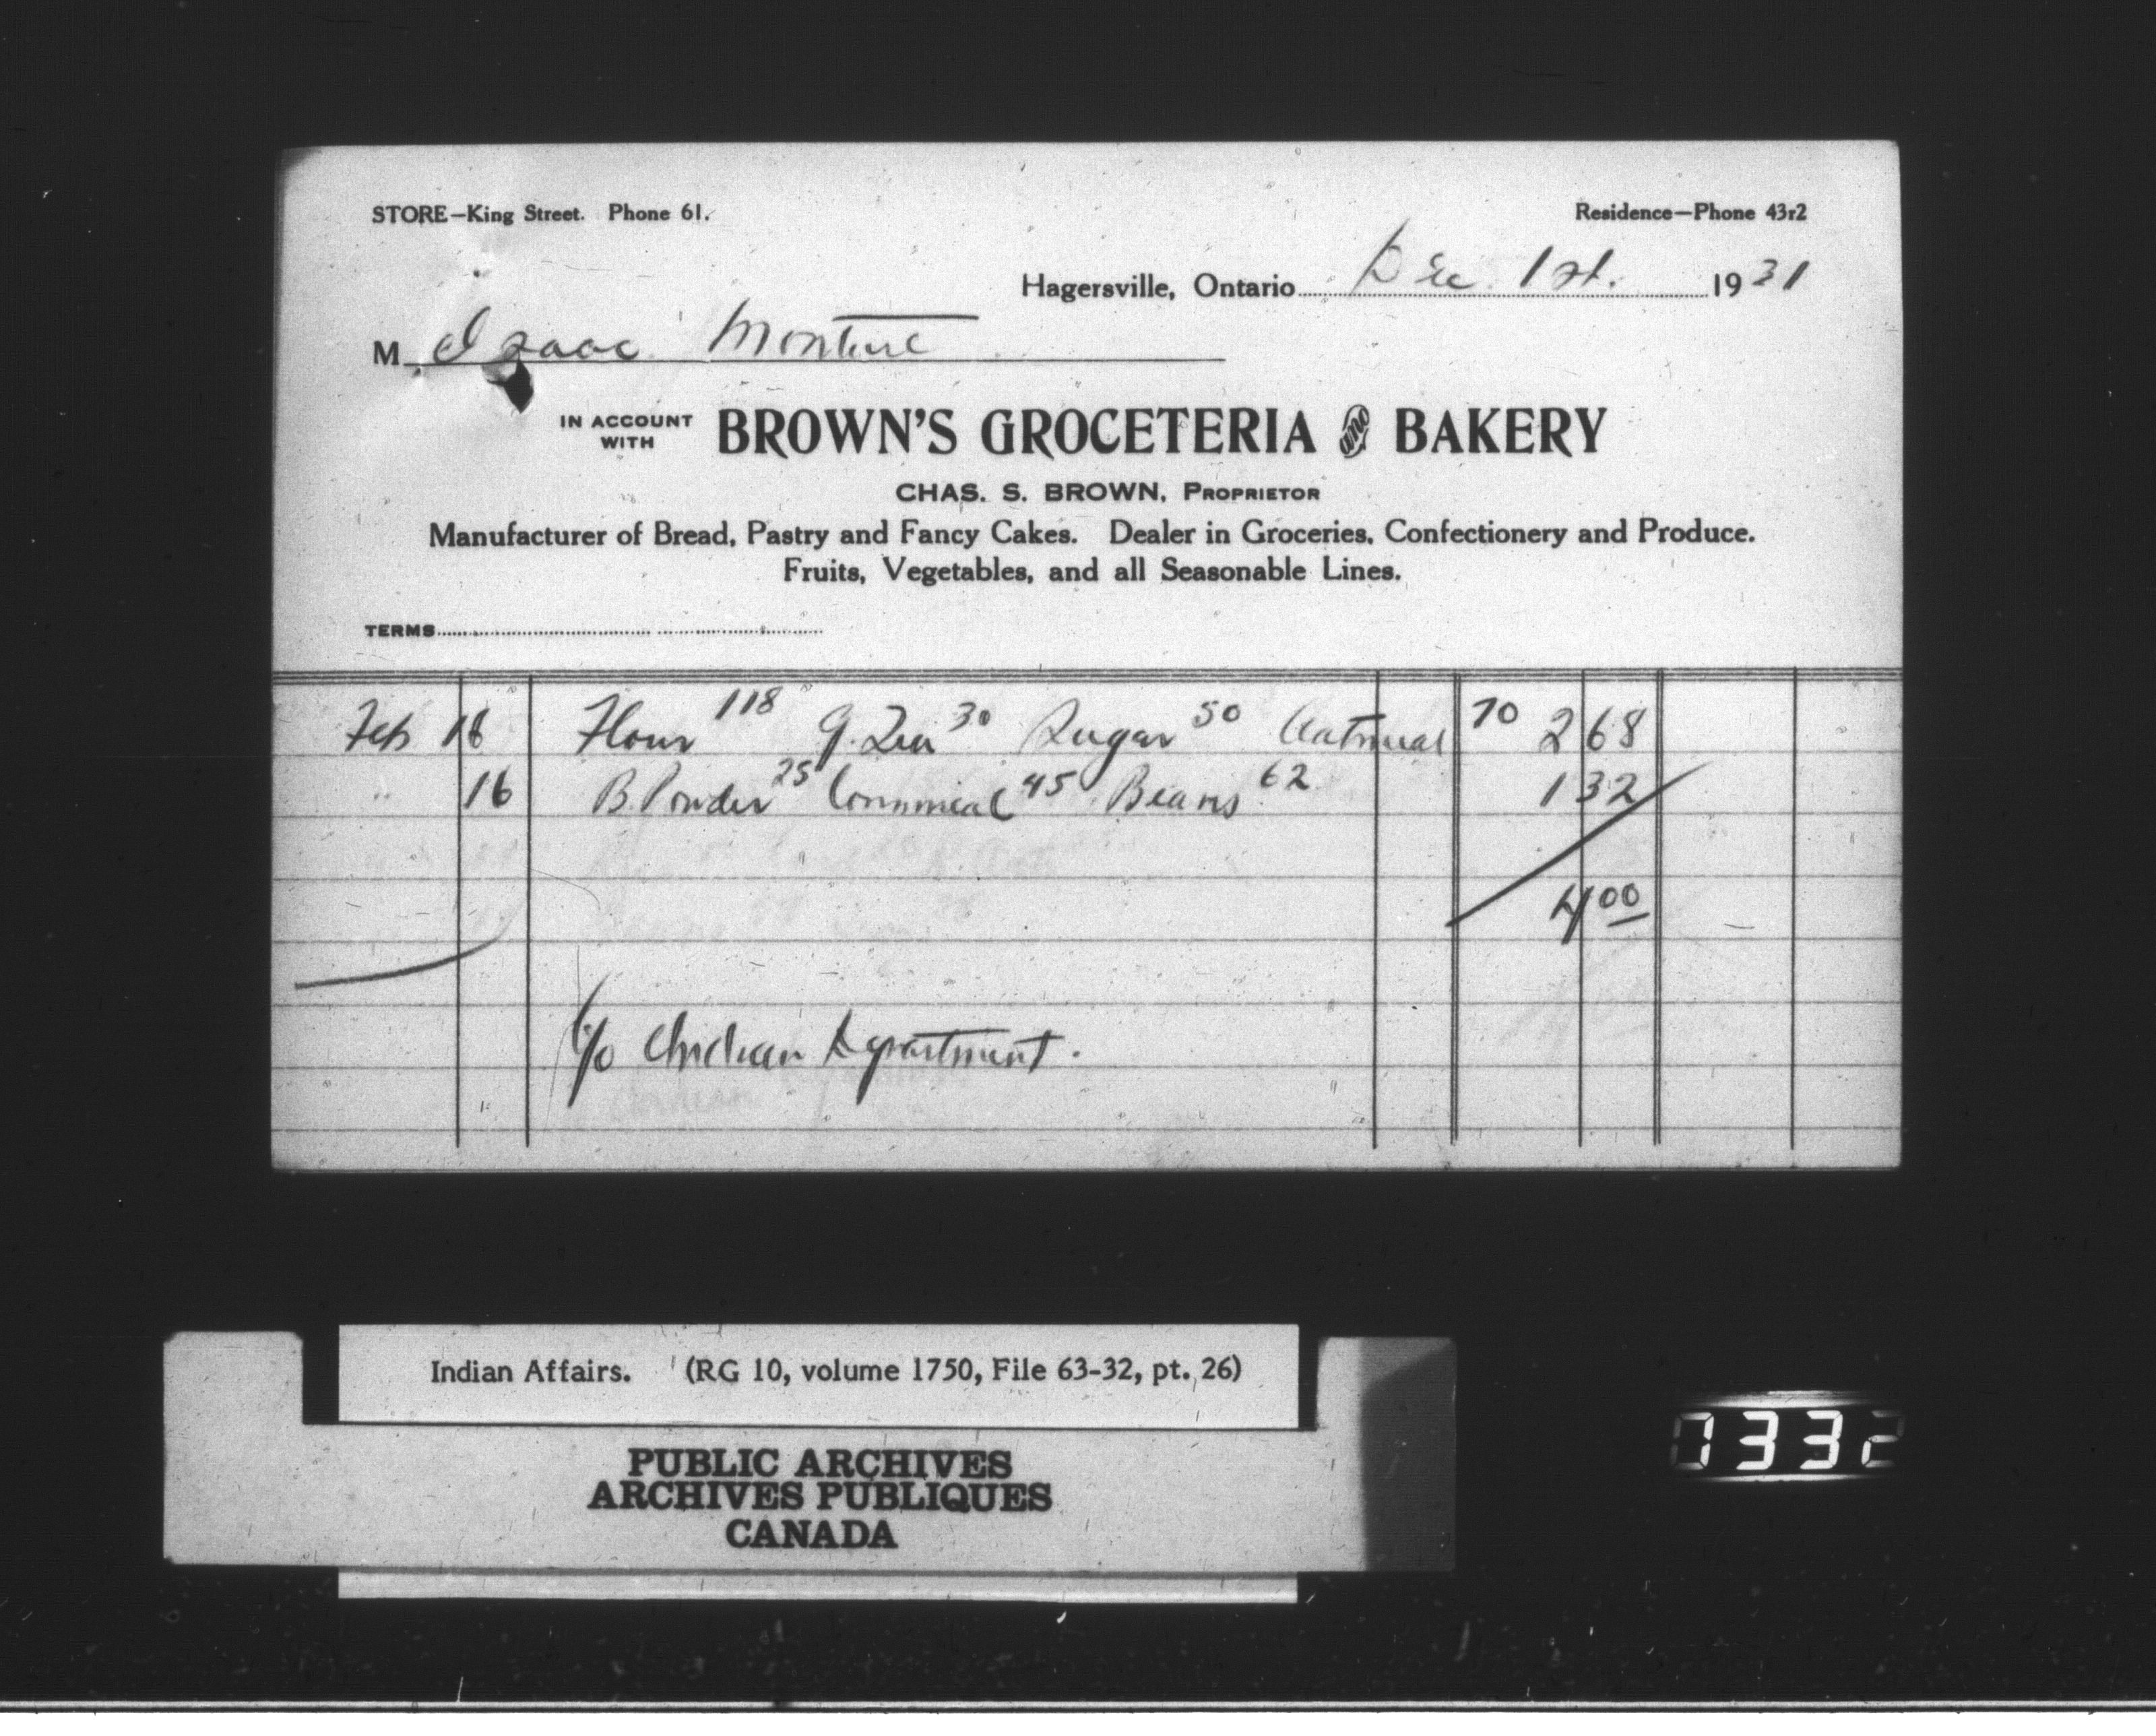 STORE—King Street. Phone 61.
Residence—Phone 43r2
Hagersville, Ontario Dec. 1st. 1931
M Isaac Monture
IN ACCOUNT WITH BROWN'S GROCETERIA AND BAKERY
CHAS. S. BROWN, PROPRIETOR
Manufacturer of Bread, Pastry and Fancy Cakes. Dealer in Groceries, Confectionery and Produce.
Fruits, Vegetables, and all Seasonable Lines.
TERMS
Feb 16 Flour 118 G. Tea 30 Sugar 50 Oatmeal 70 2 68
" 16 B. Powder 25 Cornmeal 45 Beans 62 1 32
4 00
c/o Indian Department.
Indian Affairs. (RG 10, volume 1750, File 63-32, pt. 26)
PUBLIC ARCHIVES
ARCHIVES PUBLIQUES
CANADA
7332